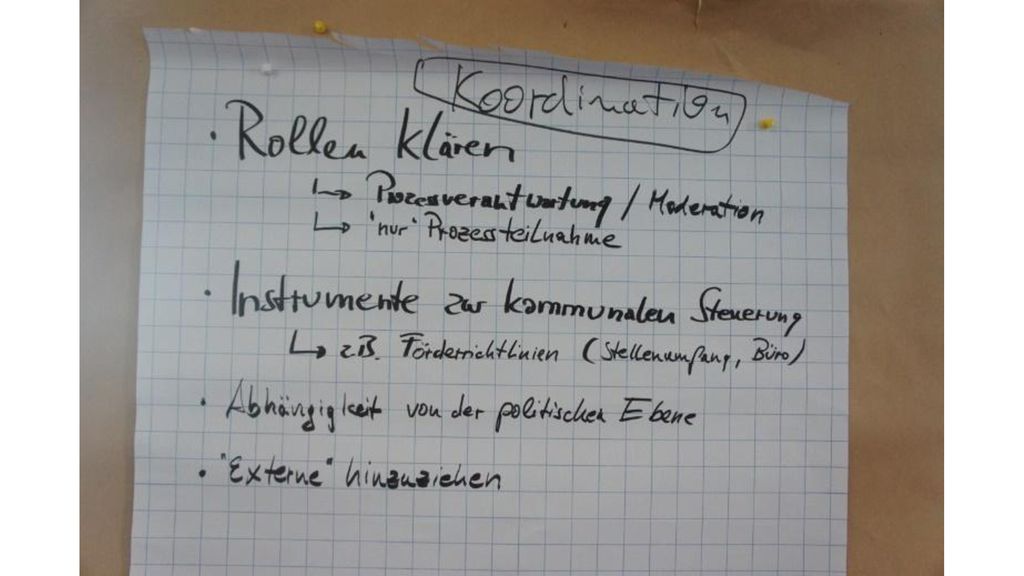 Koordination
· Rollen klären
↳ Prozessverantwortung / Moderation
↳ "nur" Prozessteilnahme
· Instrumente zur kommunalen Steuerung
↳ z.B. Förderrichtlinien (Stellenumfang, Büro)
· Abhängigkeit von der politischen Ebene
· "Externe" hinzuziehen